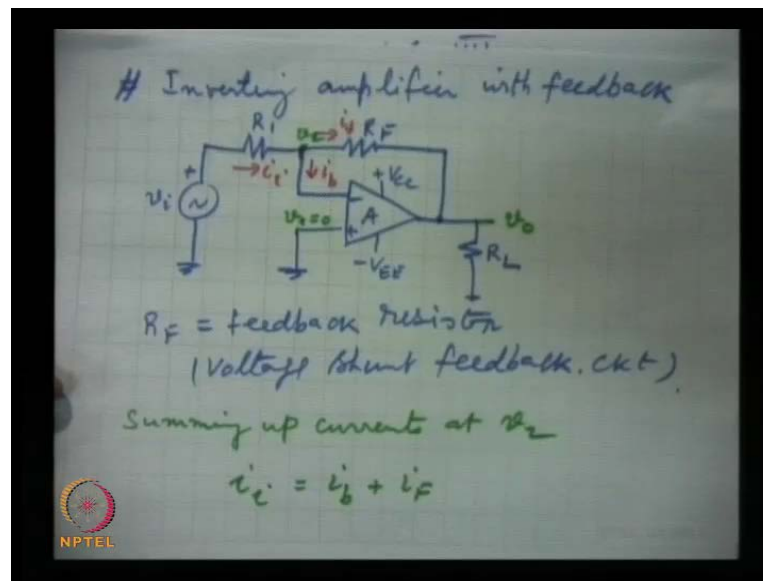 # Inverting amplifier with feedback
R1 v2 if RF
→ ii ↓ ib +VCC
vi + ~ - A vo
v1=0 +
-VEE RL
RF = feedback resistor
(Voltage shunt feedback. ckt)
Summing up currents at v2
ii = ib + iF
NPTEL